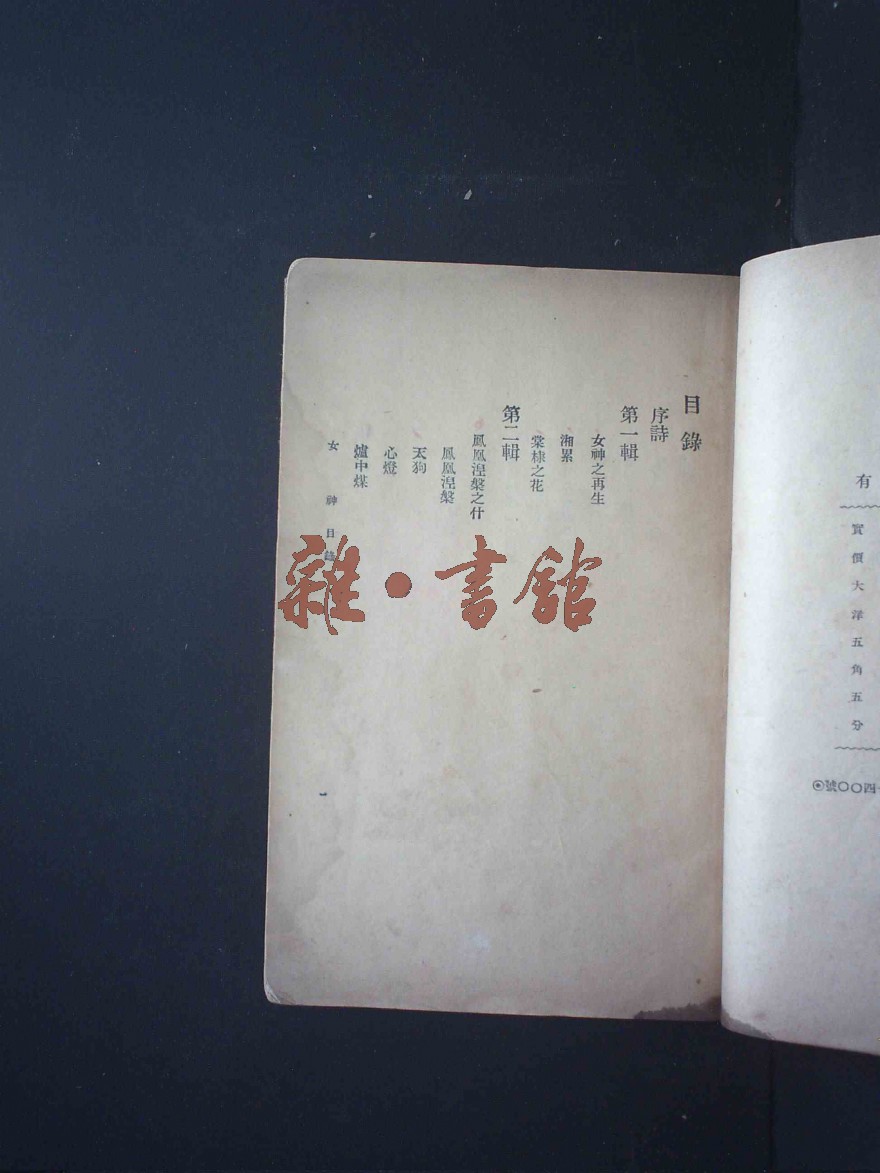 有
實價大洋五角五分
四〇〇號◉
目錄
序詩
第一輯
女神之再生
湘累
棠棣之花
第二輯
鳳凰湼槃之什
鳳凰湼槃
天狗
心燈
爐中煤
女神目錄
一
雜·書館